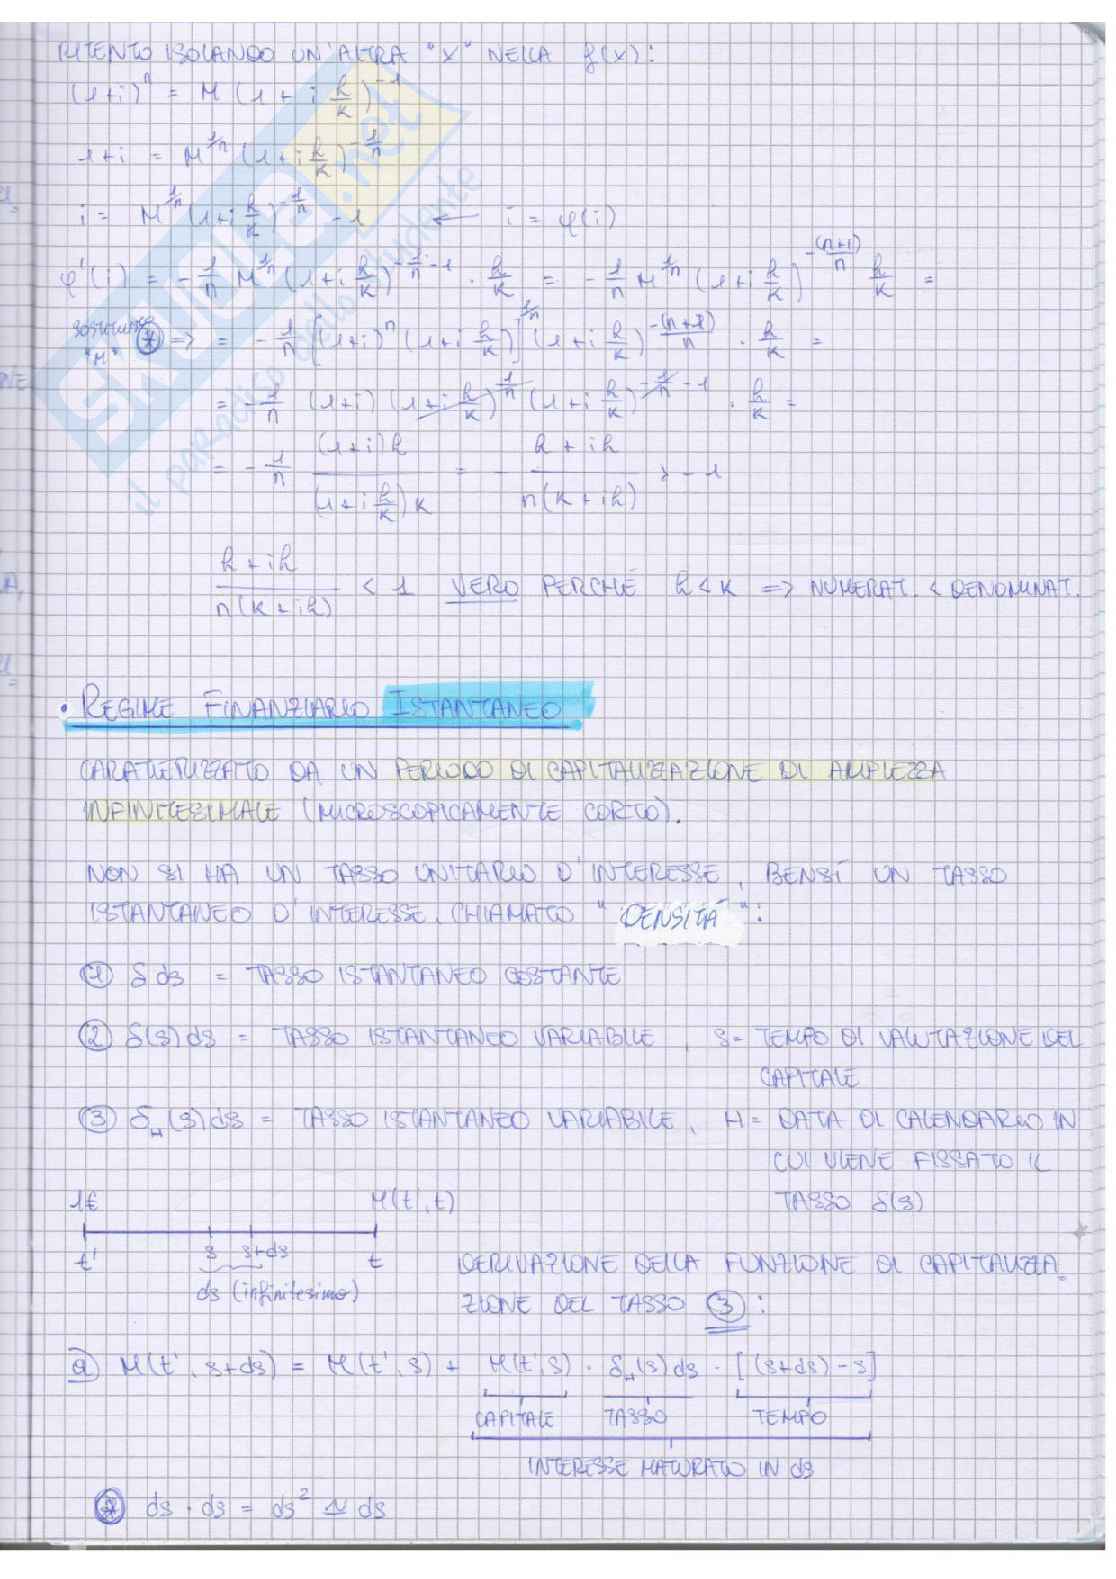 RITENTO ISOLANDO UN'ALTRA "X" NELLA f(x):
(1+i)^n = M (1+i h/k)^-1
1+i = M^1/n (1+i h/k)^-1/n
i = M^1/n (1+i h/k)^-1/n - 1 ← i = φ(i)
φ'(i) = -1/n M^1/n (1+i h/k)^-1/n-1 · h/k = -1/n M^1/n (1+i h/k)^-(n+1)/n h/k =
"M" (*) => = -1/n [(1+i)^n (1+i h/k)]^1/n (1+i h/k)^-(n+1)/n · h/k =
= -1/n (1+i) (1+i h/k)^1/n (1+i h/k)^-1/n-1 · h/k =
= -1/n (1+i)h / (1+i h/k)k = - h+ih / n(k+ih) > -1
h+ih / n(k+ih) < 1 VERO PERCHÉ h<k => NUMERAT. < DENOMINAT.
• REGIME FINANZIARIO ISTANTANEO
CARATTERIZZATO DA UN PERIODO DI CAPITALIZZAZIONE DI AMPIEZZA
INFINITESIMALE (MICROSCOPICAMENTE CORTO).
NON SI HA UN TASSO UNITARIO D'INTERESSE, BENSÌ UN TASSO
ISTANTANEO D'INTERESSE, CHIAMATO "DENSITÀ":
① δ ds = TASSO ISTANTANEO COSTANTE
② δ(s) ds = TASSO ISTANTANEO VARIABILE, s = TEMPO DI VALUTAZIONE DEL
CAPITALE
③ δH(s) ds = TASSO ISTANTANEO VARIABILE, H = DATA DI CALENDARIO IN
CUI VIENE FISSATO IL
TASSO δ(s)
1€ M(t', t)
t' s s+ds t
ds (infinitesimo)
DERIVAZIONE DELLA FUNZIONE DI CAPITALIZZA
ZIONE DEL TASSO ③:
a) M(t', s+ds) = M(t', s) + M(t', s) · δH(s) ds · [(s+ds) - s]
CAPITALE TASSO TEMPO
INTERESSE MATURATO IN ds
(*) ds · ds = ds² ≃ ds
SKUOLA.net
il paradiso dello studente